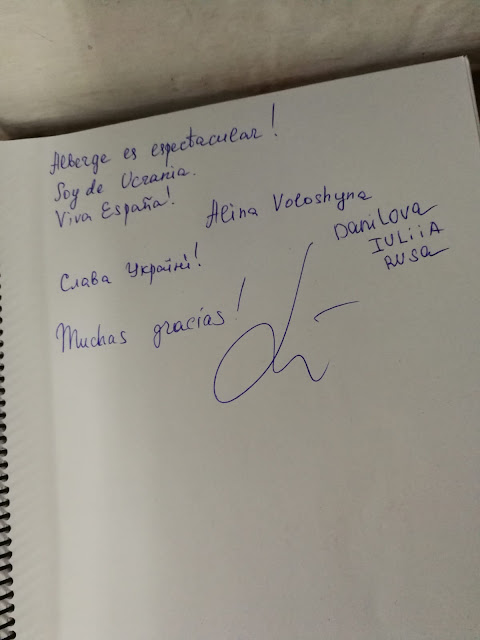 Alberge es espectacular!
Soy de Ucrania.
Viva España!
Alina Voloshyna
Danilova
IULiiA
RUSa
Слава Україні!
Muchas gracias!